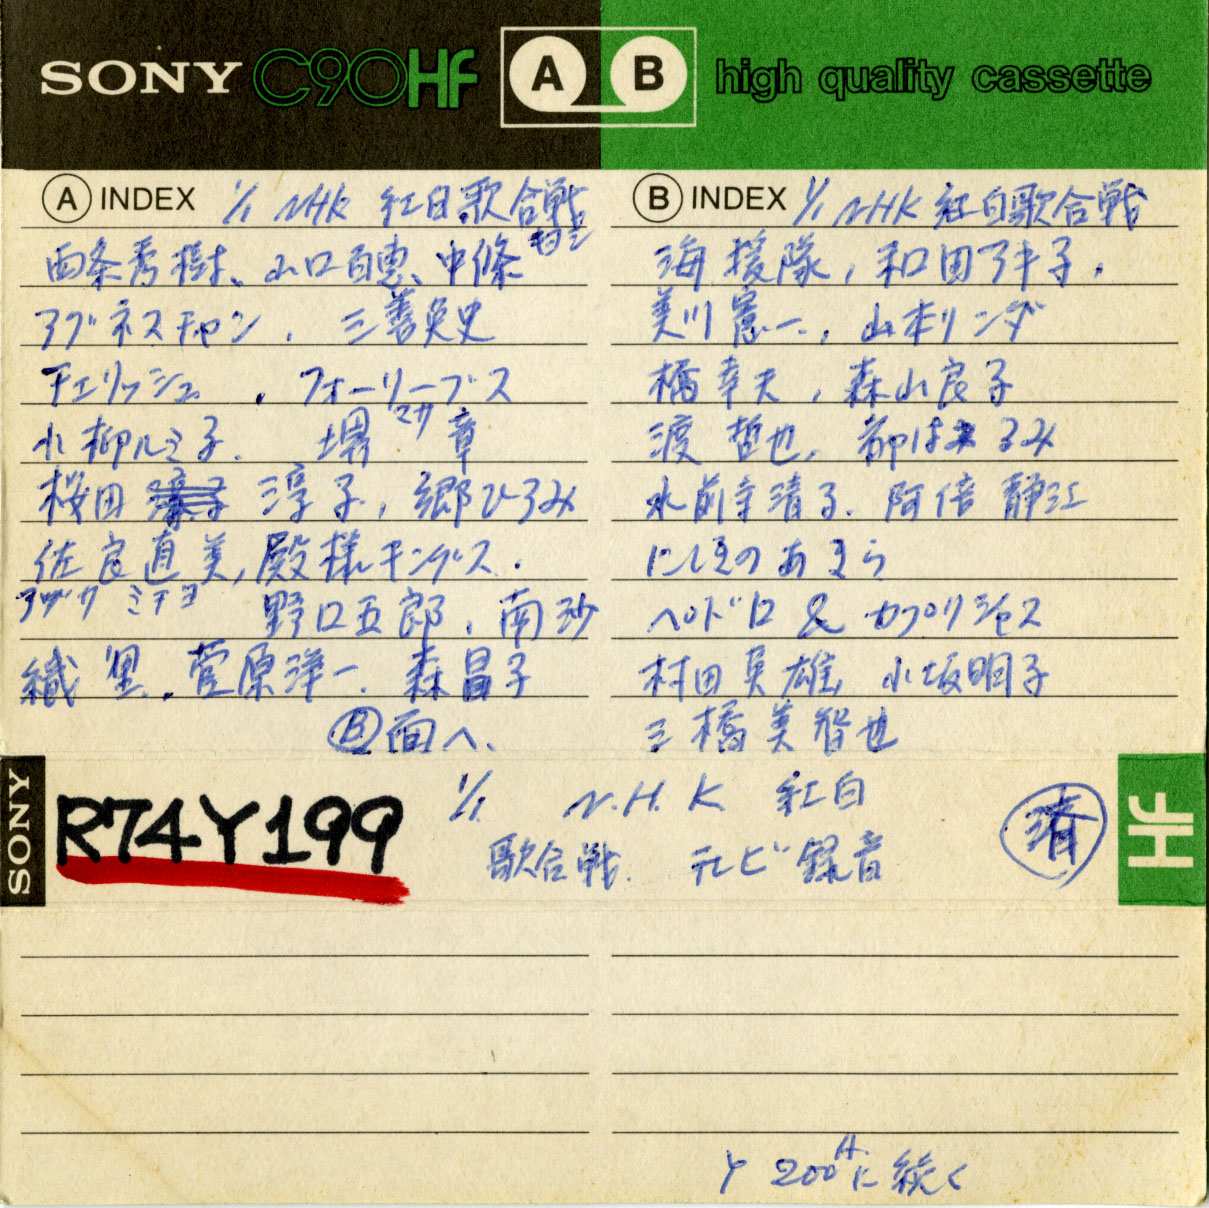 SONY C90HF A B high quality cassette
A INDEX 1/1 NHK 紅白歌合戦
西条秀樹、山口百恵、中條
キヨシ
アグネスチャン、三善英史
チェリッシュ、フォーリーブス
小柳ルミ子. 堺マサ章
桜田 淳子, 郷ひろみ
佐良直美, 殿様キングス.
アヅサ ミチヨ 野口五郎、南沙
織 里、菅原洋一. 森昌子
B面へ.
B INDEX 1/1 NHK 紅白歌合戦
海援隊, 和田アキ子,
美川憲一, 山本リンダ
橋幸夫, 森山良子
渡哲也, 都はるみ
水前寺清子. 阿倍静江
にしきのあきら
ペドロ & カプリシャス
村田英雄 小坂明子
三橋美智也
SONY
R74Y199
1/1 N.H.K 紅白
歌合戦. テレビ録音
済
HF
Y 200Aに続く